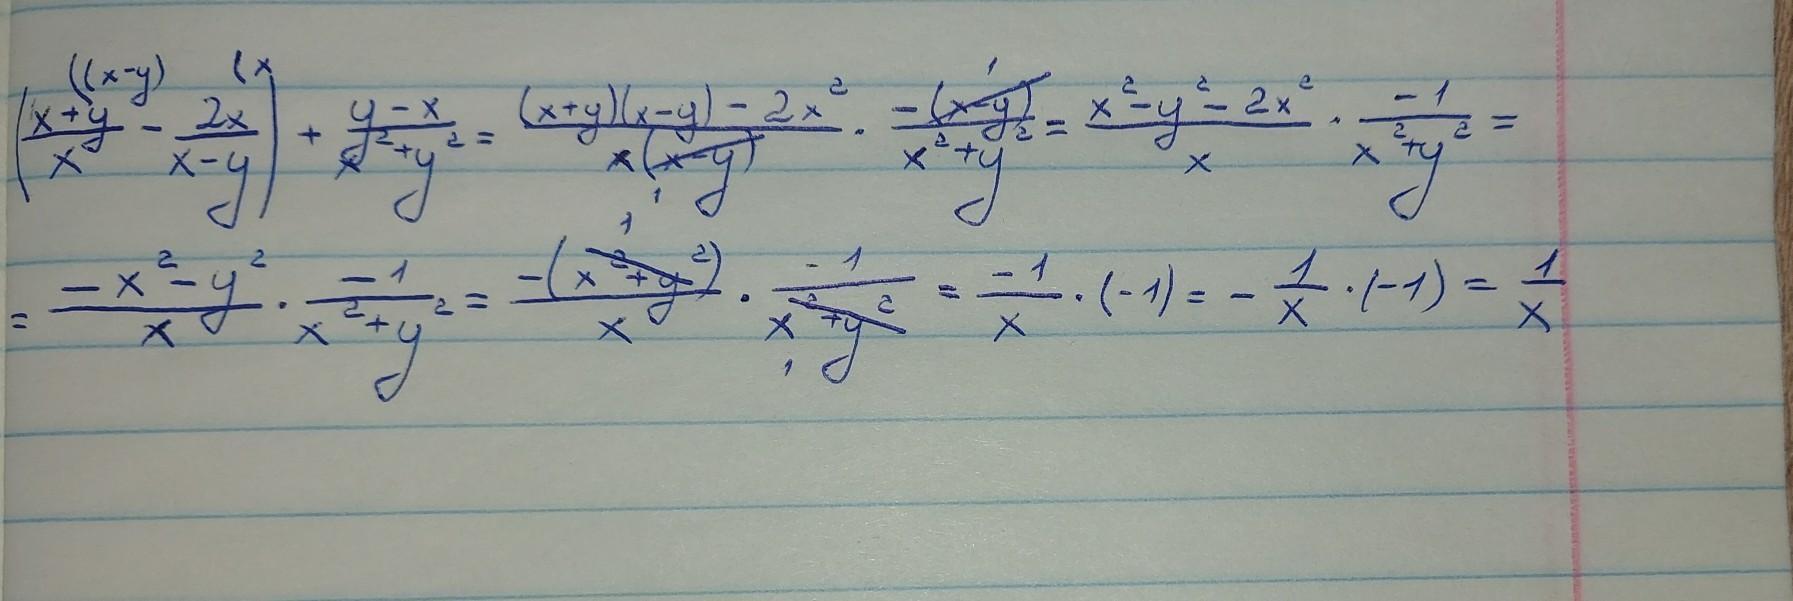 ((x+y)/x^{((x-y)} - 2x/(x-y)^{(x}) + (y-x)/(x²+y²) = ((x+y)(x-y) - 2x²)/(x(x-y)) · (-(x-y))/(x²+y²) = (x²-y²-2x²)/x · (-1)/(x²+y²) =
= (-x²-y²)/x · (-1)/(x²+y²) = (-(x²+y²))/x · (-1)/(x²+y²) = (-1)/x · (-1) = - 1/x · (-1) = 1/x